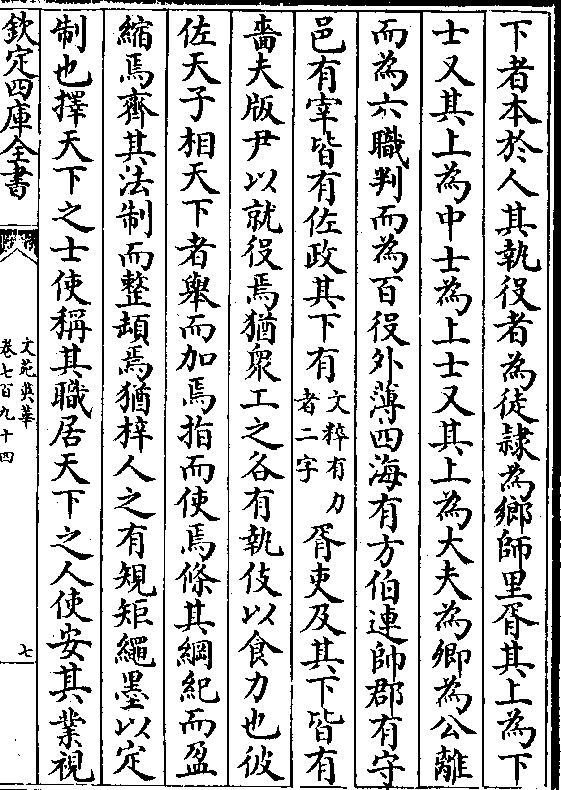 下者本於人其執役者為徒隸為鄉師里胥其上為下
士又其上為中士為上士又其上為大夫為卿為公離
而為六職判而為百役外薄四海有方伯連帥郡有守
邑有宰皆有佐政其下有文粹有力者二字胥吏及其下皆有
嗇夫版尹以就役焉猶衆工之各有執伎以食力也彼
佐天子相天下者舉而加焉指而使焉條其綱紀而盈
縮焉齊其法制而整頓焉猶梓人之有規矩繩墨以定
制也擇天下之士使稱其職居天下之人使安其業視
欽定四庫全書
文苑英華
卷七百九十四
七